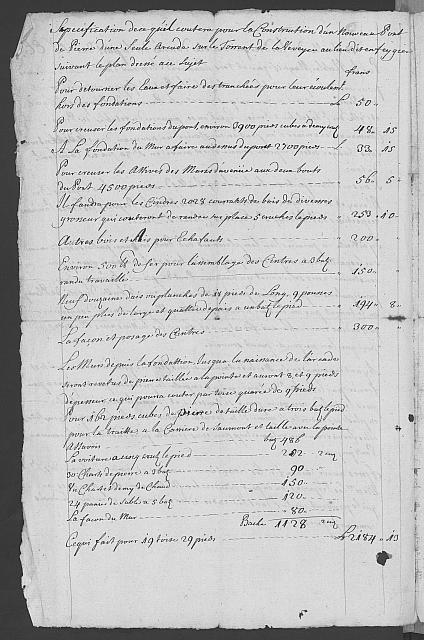 Sapecification de ce qu'il coutera pour la Construction d'un Nouveau Pont
de Pierre d'une Seule Arcade sur le Torrent de la Veveyse au lieu dit en feygire
suivant le plan dressé à ce Sujet
frans
Pour detourner les Eaux et faire des tranchées pour leur écoulent
hors des fondations L 50 "
Pour creuser les fondations du pont, environ 3900 pieds cubes a demy batz " 48 " 15
A La fondation du Mur a faire au dessus du pont 2700 pieds L 33 " 15
Pour creuser les des Murs d'avenue aux deux bouts
du Pont 4500 pieds " 56 " 5
Il faudra pour les Cindres 2028 courants de bois de diverses
grosseur qui couteront de rendu sur place 5 cruches le pied " 253 " 10
Autres bois et Ais pour Echafauts " 200 "
Environ 500 lb de fer pour l'assemblage des Centres a 3 batz
rendu travaillé " 150 "
Neuf douzaines d'ais ou planches de 18 pieds de Long, 9 pouces
un peu plus de large et quattre d'epais a un batz le pied " 194 " 8
La façon et posage des Centres " 300 "
Les Murs depuis la fondation, Jusqu'a la naissance de l'arcade
seront revetus de pierre taillée a la pointe et auront 8 et 9 pieds
d'epesseur ce qui pourra couter par toise quarée de 9 pieds
Pour 162 pieds cubes de pierre de taille dure a trois batz le pied
pour la traitte a la Carriere de Saumont et taillée avec la pointe
Assavoir batz 486
La voiture a cinq le pied " 202 " 2
30 Chars de pierre a 3 batz 90
Chars et demy de Chaud 150
24 de Sable a 5 batz 120
La façon du Mur " 80
Bache 1128 " 2
Ce qui fait pour 19 toise 29 pieds L 2184 " 13